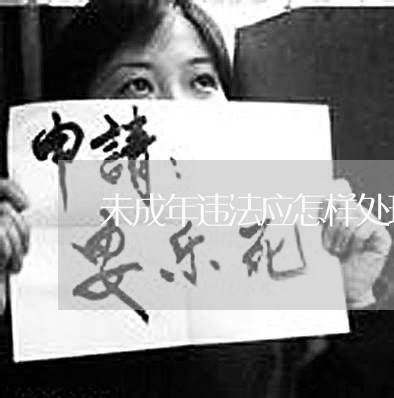 申請：
未成年违法应怎样处
安乐死